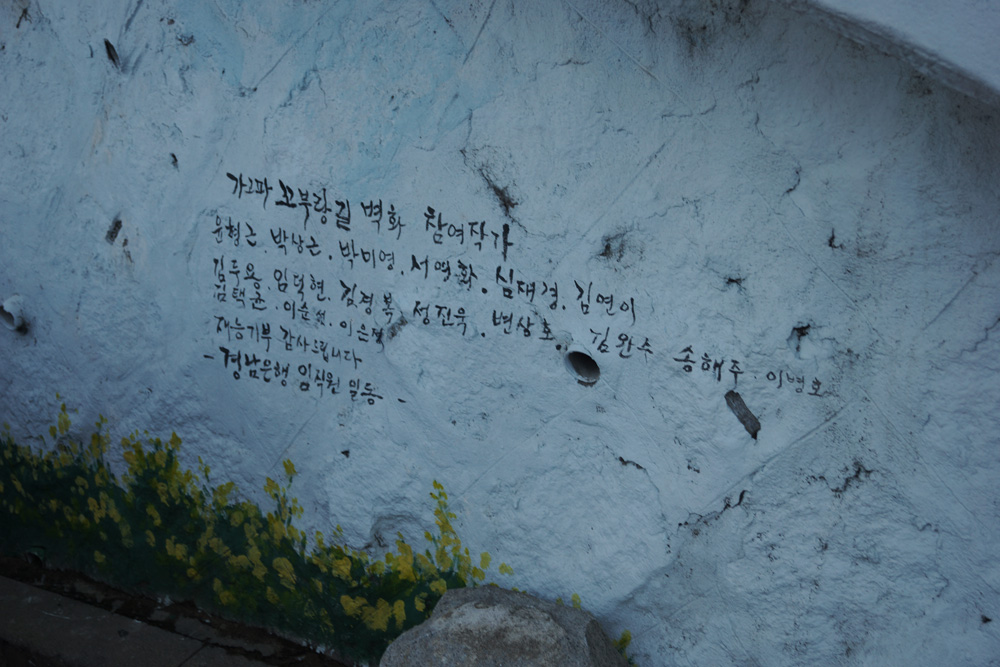 가고파 꼬부랑길 벽화 참여작가
윤형근. 박상근. 박미영. 서영화. 심재경. 김연이
김두용. 임덕현. 김경복. 성진욱. 변상호. 김완수 송해주. 이병호
김택균. 이순섭. 이은정
재능기부 감사드립니다
- 경남은행 임직원 일동 -